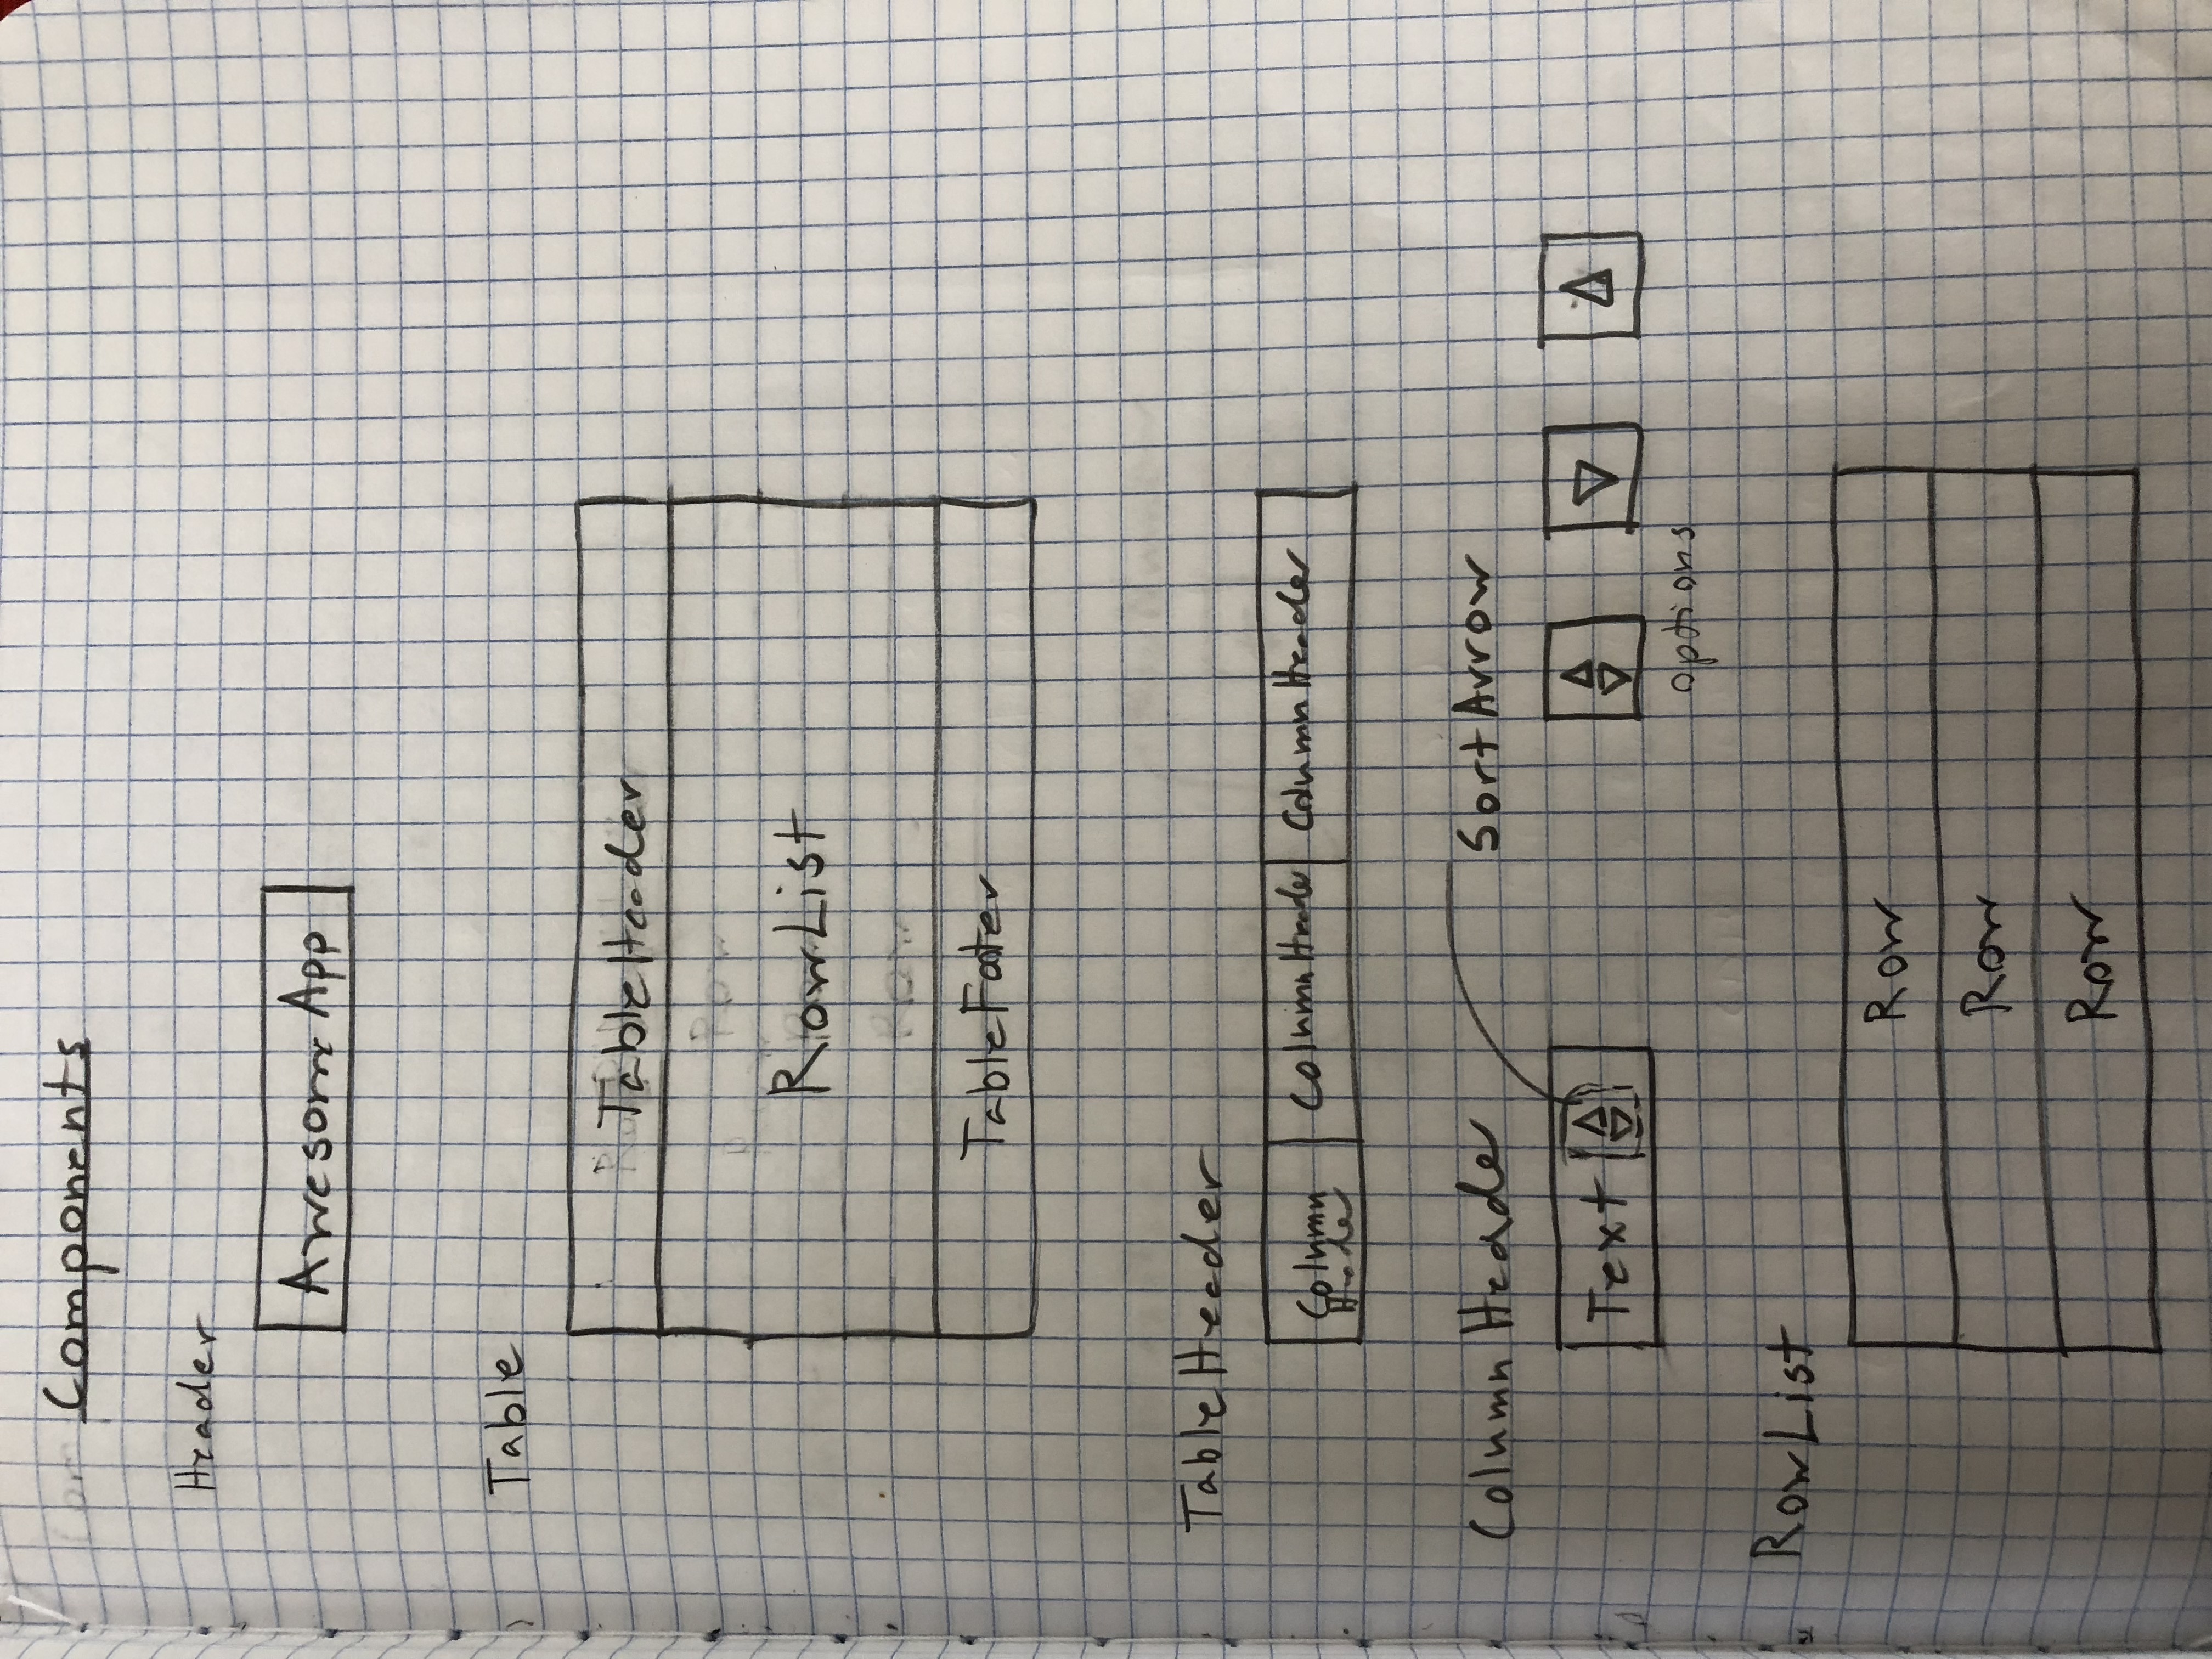 Components
Header
Awesome App
Table
TableHeader
Row
RowList
Row
TableFooter
TableHeader
Column
Header
ColumnHeader
ColumnHeader
ColumnHeader
SortArrow
Text
options
RowList
Row
Row
Row